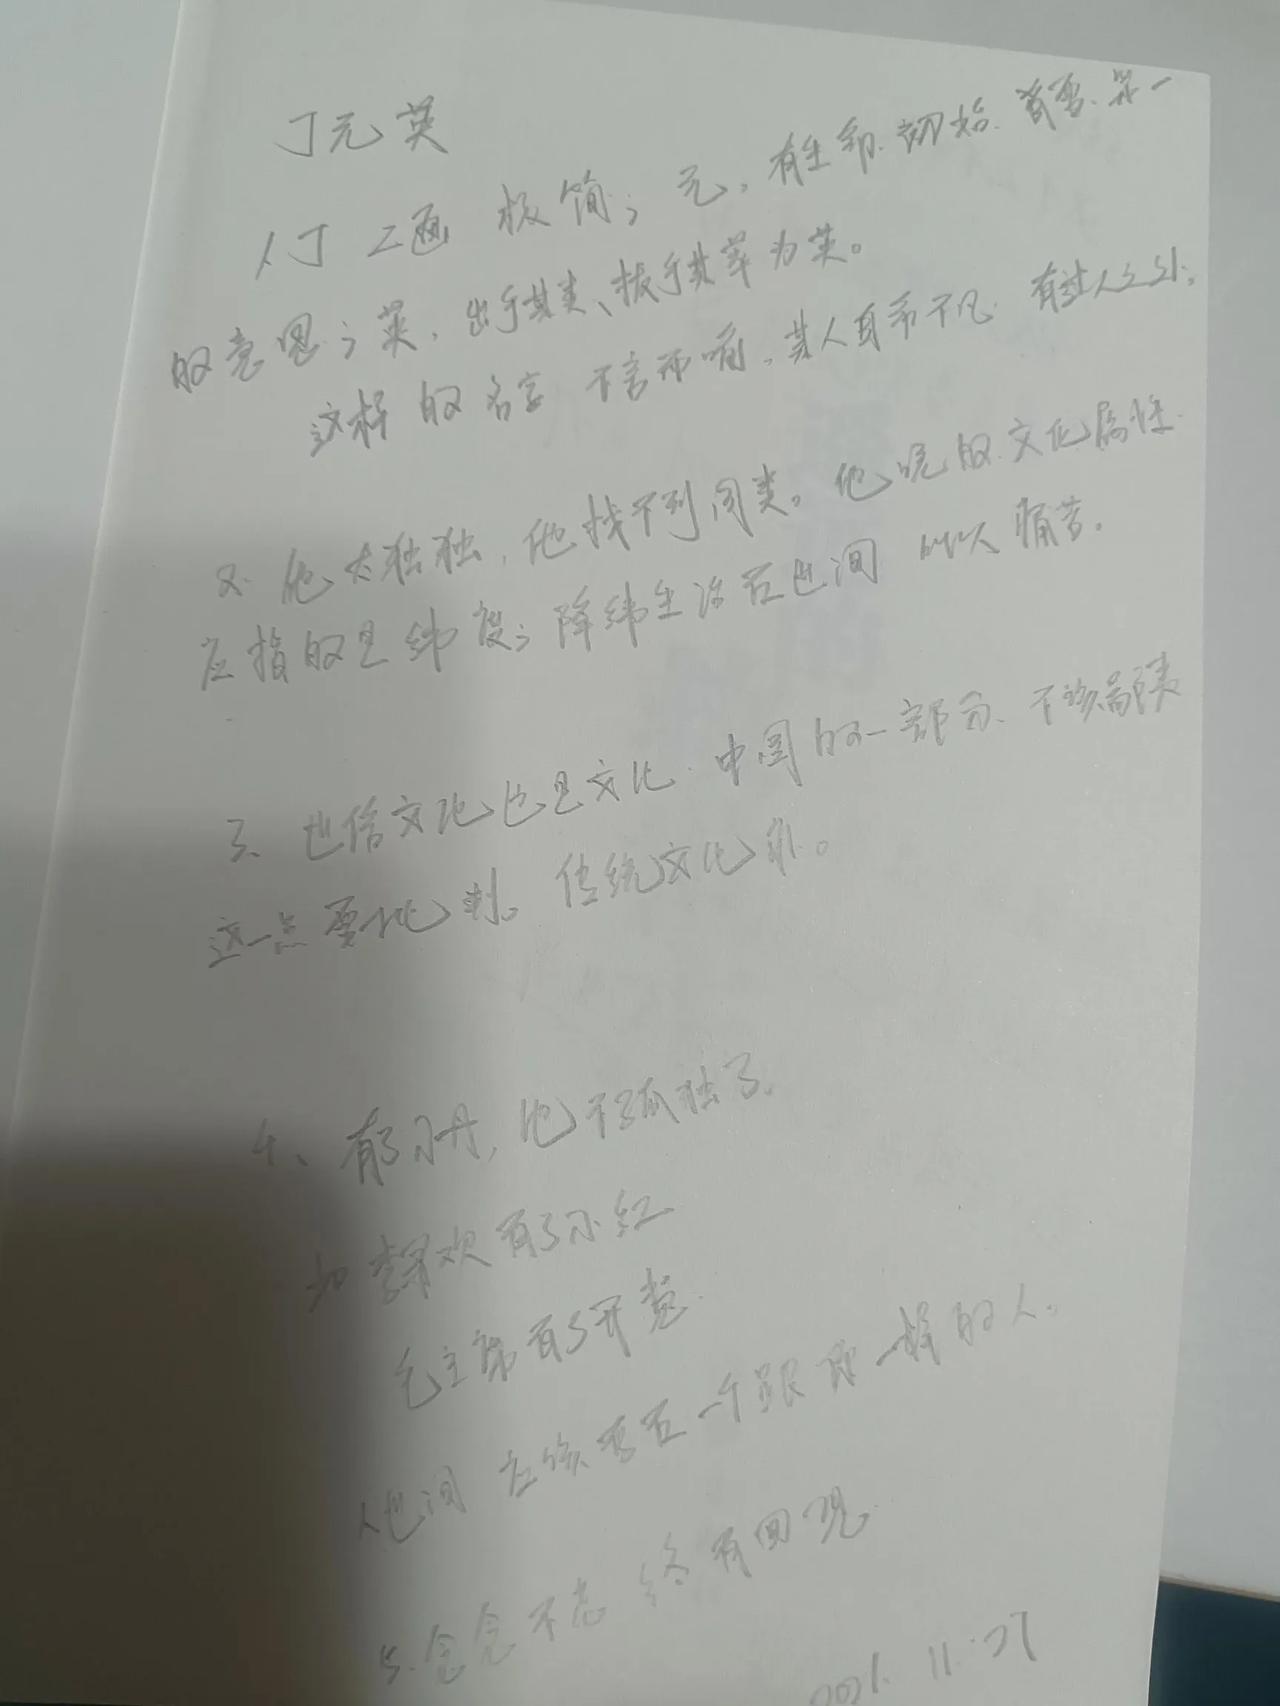 丁元英
1、丁 二画 极简；元，有全部、初始、首要、第一
的意思；英，出于其类、拔于其萃为英。
这样的名字 不言而喻，其人自命不凡 有过人之处；
2、他太独独，他找不到同类。他说的文化属性
应指的是纬度；降纬生活在世间 所以痛苦。
3、世俗文化也是文化 中国的一部分、不该
这一点要批判。传统文化
4、有了小丹，他不孤独了、
如 欢有了小红
毛主席有了开慧
人世间 应该存在一个跟 一样的人。
5、念念不忘 终有回现
2021.11.27